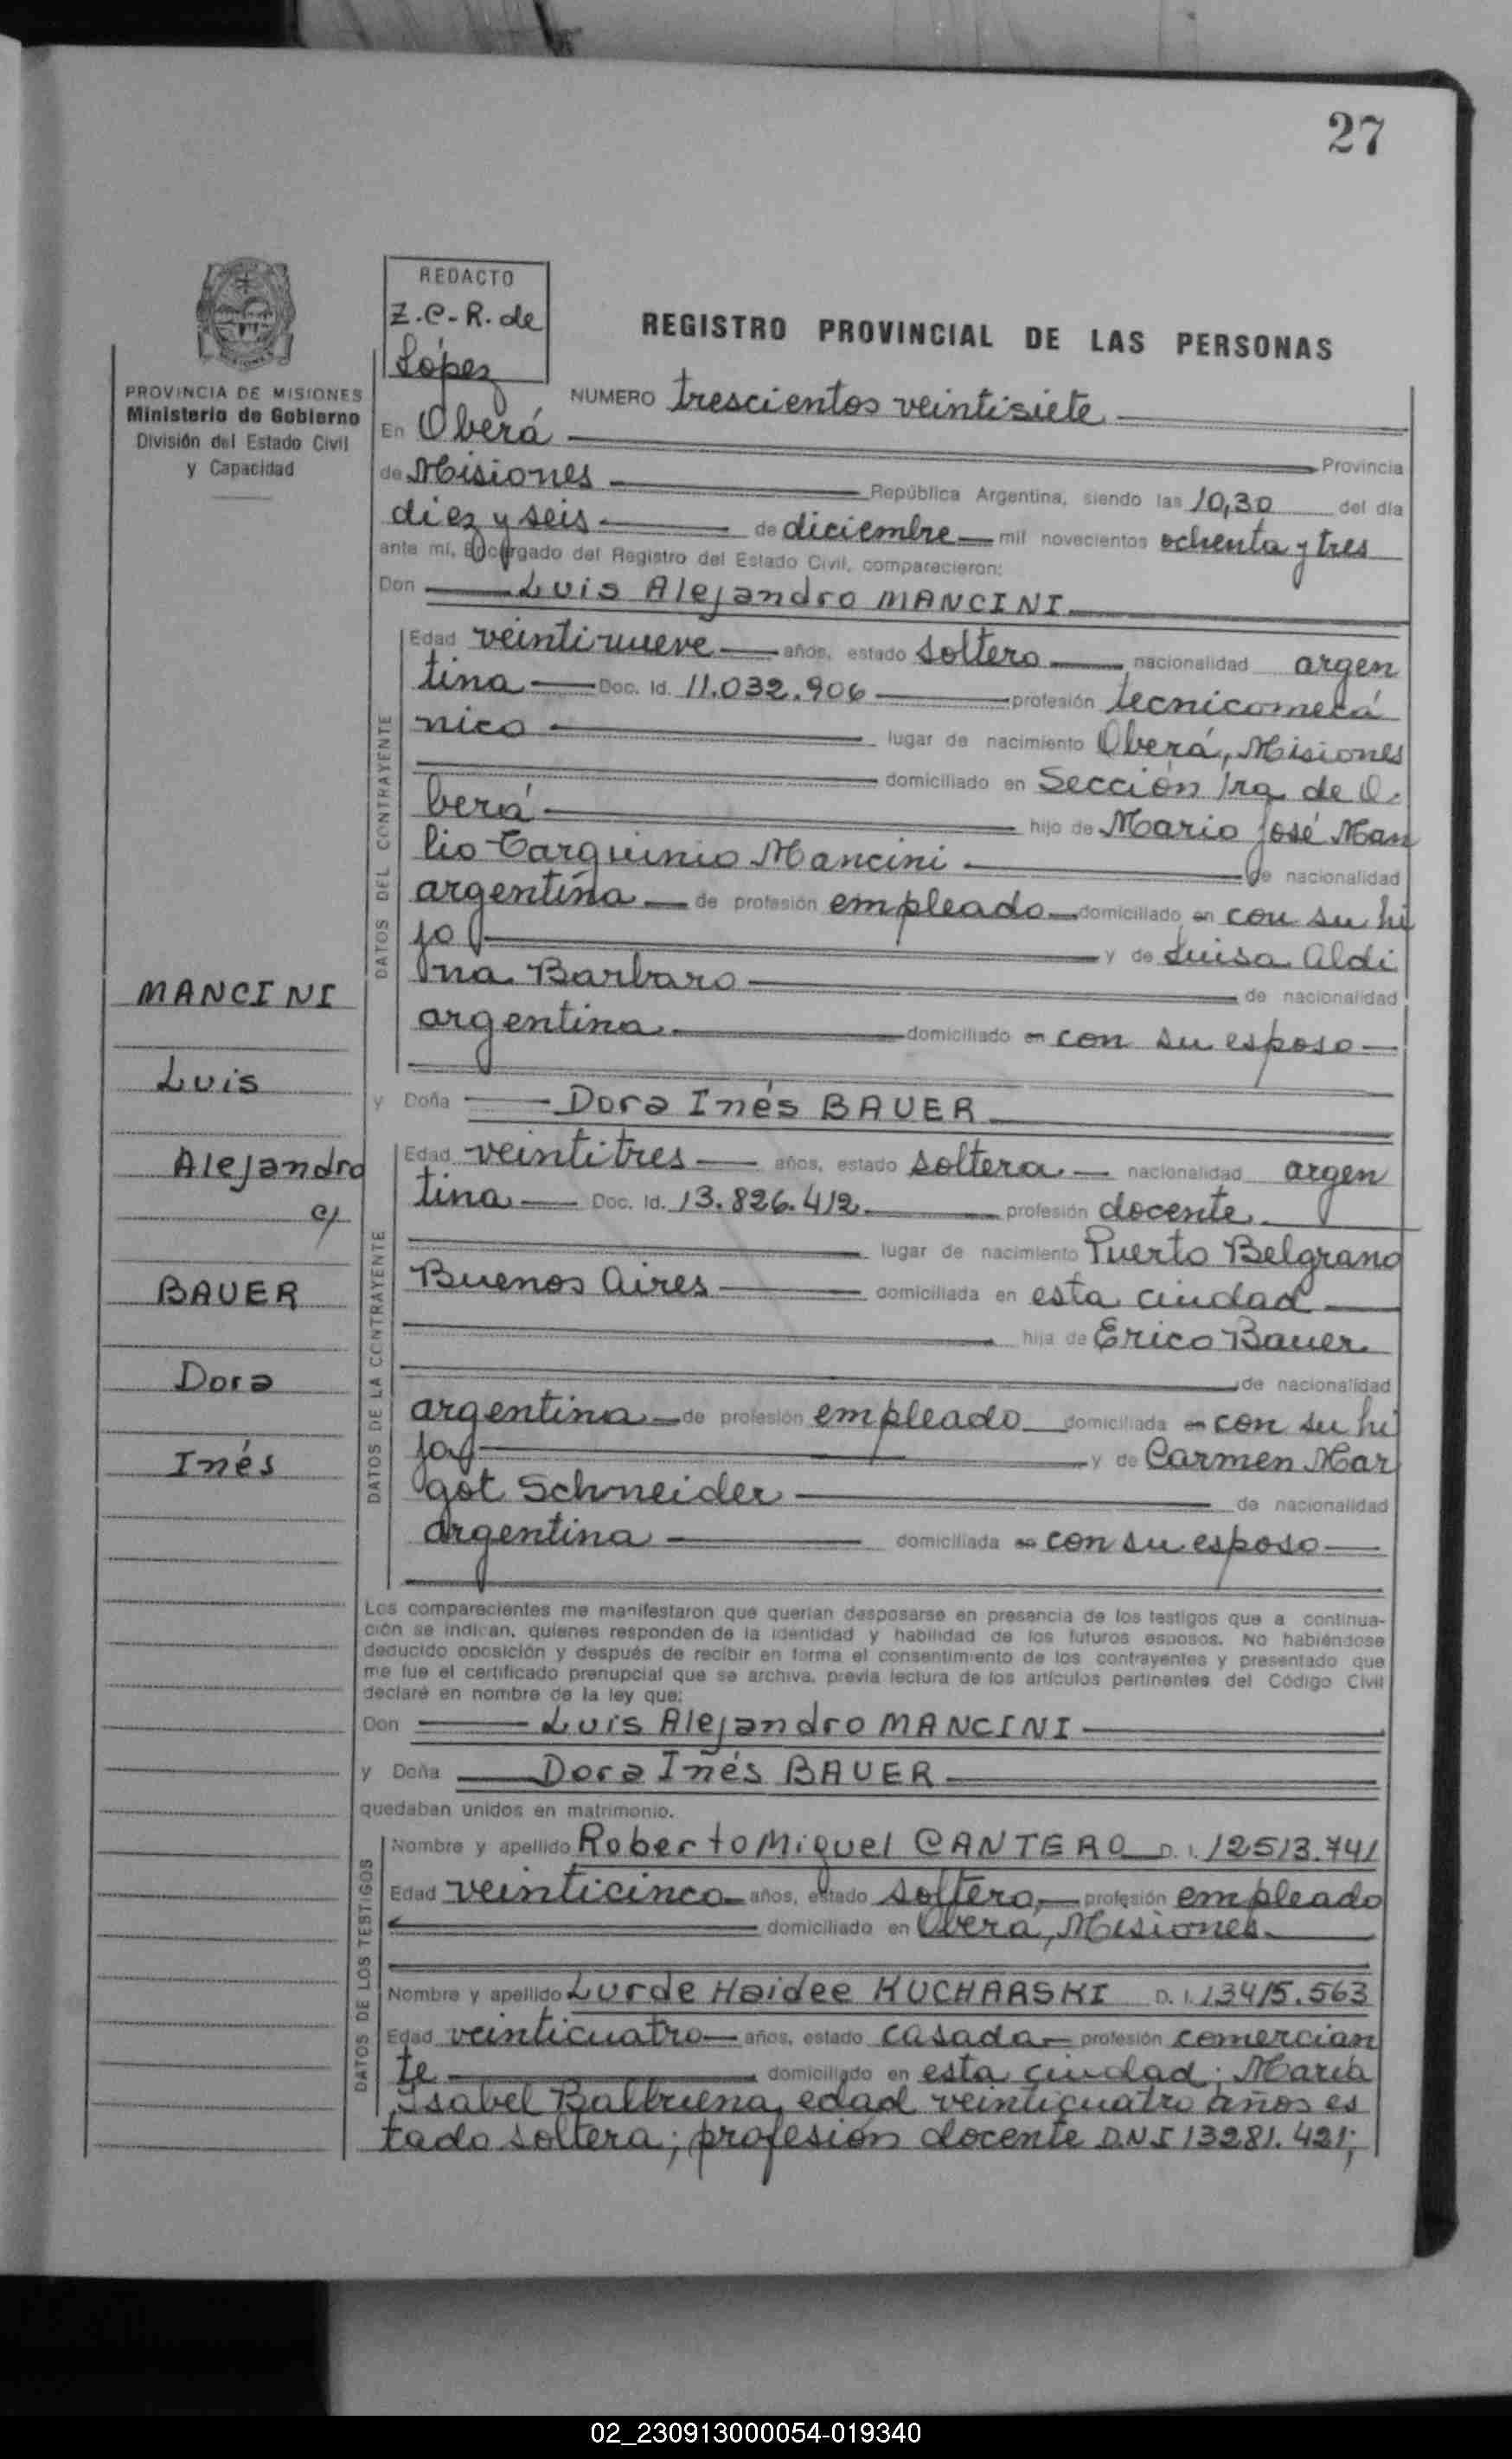 27
REDACTO
Z.C-R. de
López
REGISTRO PROVINCIAL DE LAS PERSONAS
PROVINCIA DE MISIONES
Ministerio de Gobierno
División del Estado Civil
y Capacidad
NUMERO trescientos veintisiete
En Oberá Provincia
de Misiones República Argentina, siendo las 10,30 del día
diez y seis de diciembre mil novecientos ochenta y tres
ante mí, Encargado del Registro del Estado Civil, comparecieron:
Don Luis Alejandro MANCINI
DATOS DEL CONTRAYENTE
Edad veintinueve años, estado soltero nacionalidad argen
tina Doc. Id. 11.032.906 profesión tecnicomecá
nico lugar de nacimiento Oberá, Misiones
domiciliado en Sección 1ra de O
berá hijo de Mario José Man
lio Tarquinio Mancini de nacionalidad
argentina de profesión empleado domiciliado en con su hi
jo y de Luisa Aldi
na Barbaro de nacionalidad
argentina domiciliado en con su esposo
y Doña Dora Inés BAUER
DATOS DE LA CONTRAYENTE
Edad veintitres años, estado soltera nacionalidad argen
tina Doc. Id. 13.826.412 profesión docente
lugar de nacimiento Puerto Belgrano
Buenos Aires domiciliada en esta ciudad
hija de Erico Bauer
de nacionalidad
argentina de profesión empleado domiciliada en con su hi
ja y de Carmen Mar
got Schneider de nacionalidad
argentina domiciliada en con su esposo
MANCINI
Luis
Alejandro
c/
BAUER
Dora
Inés
Los comparecientes me manifestaron que querían desposarse en presencia de los testigos que a continua-
ción se indican, quienes responden de la identidad y habilidad de los futuros esposos. No habiéndose
deducido oposición y después de recibir en forma el consentimiento de los contrayentes y presentado que
me fue el certificado prenupcial que se archiva, previa lectura de los artículos pertinentes del Código Civil
declaré en nombre de la ley que:
Don Luis Alejandro MANCINI
y Doña Dora Inés BAUER
quedaban unidos en matrimonio.
DATOS DE LOS TESTIGOS
Nombre y apellido Roberto Miguel CANTERO D. I. 12513.741
Edad veinticinco años, estado soltero, profesión empleado
domiciliado en Oberá, Misiones
Nombre y apellido Lurde Haidee KUCHARSKI D. I. 13415.563
Edad veinticuatro años, estado casada profesión comercian
te domiciliado en esta ciudad; María
Isabel Balbuena, edad veinticuatro años es
tado soltera; profesión docente D.N.I 13281.421;
02_230913000054-019340